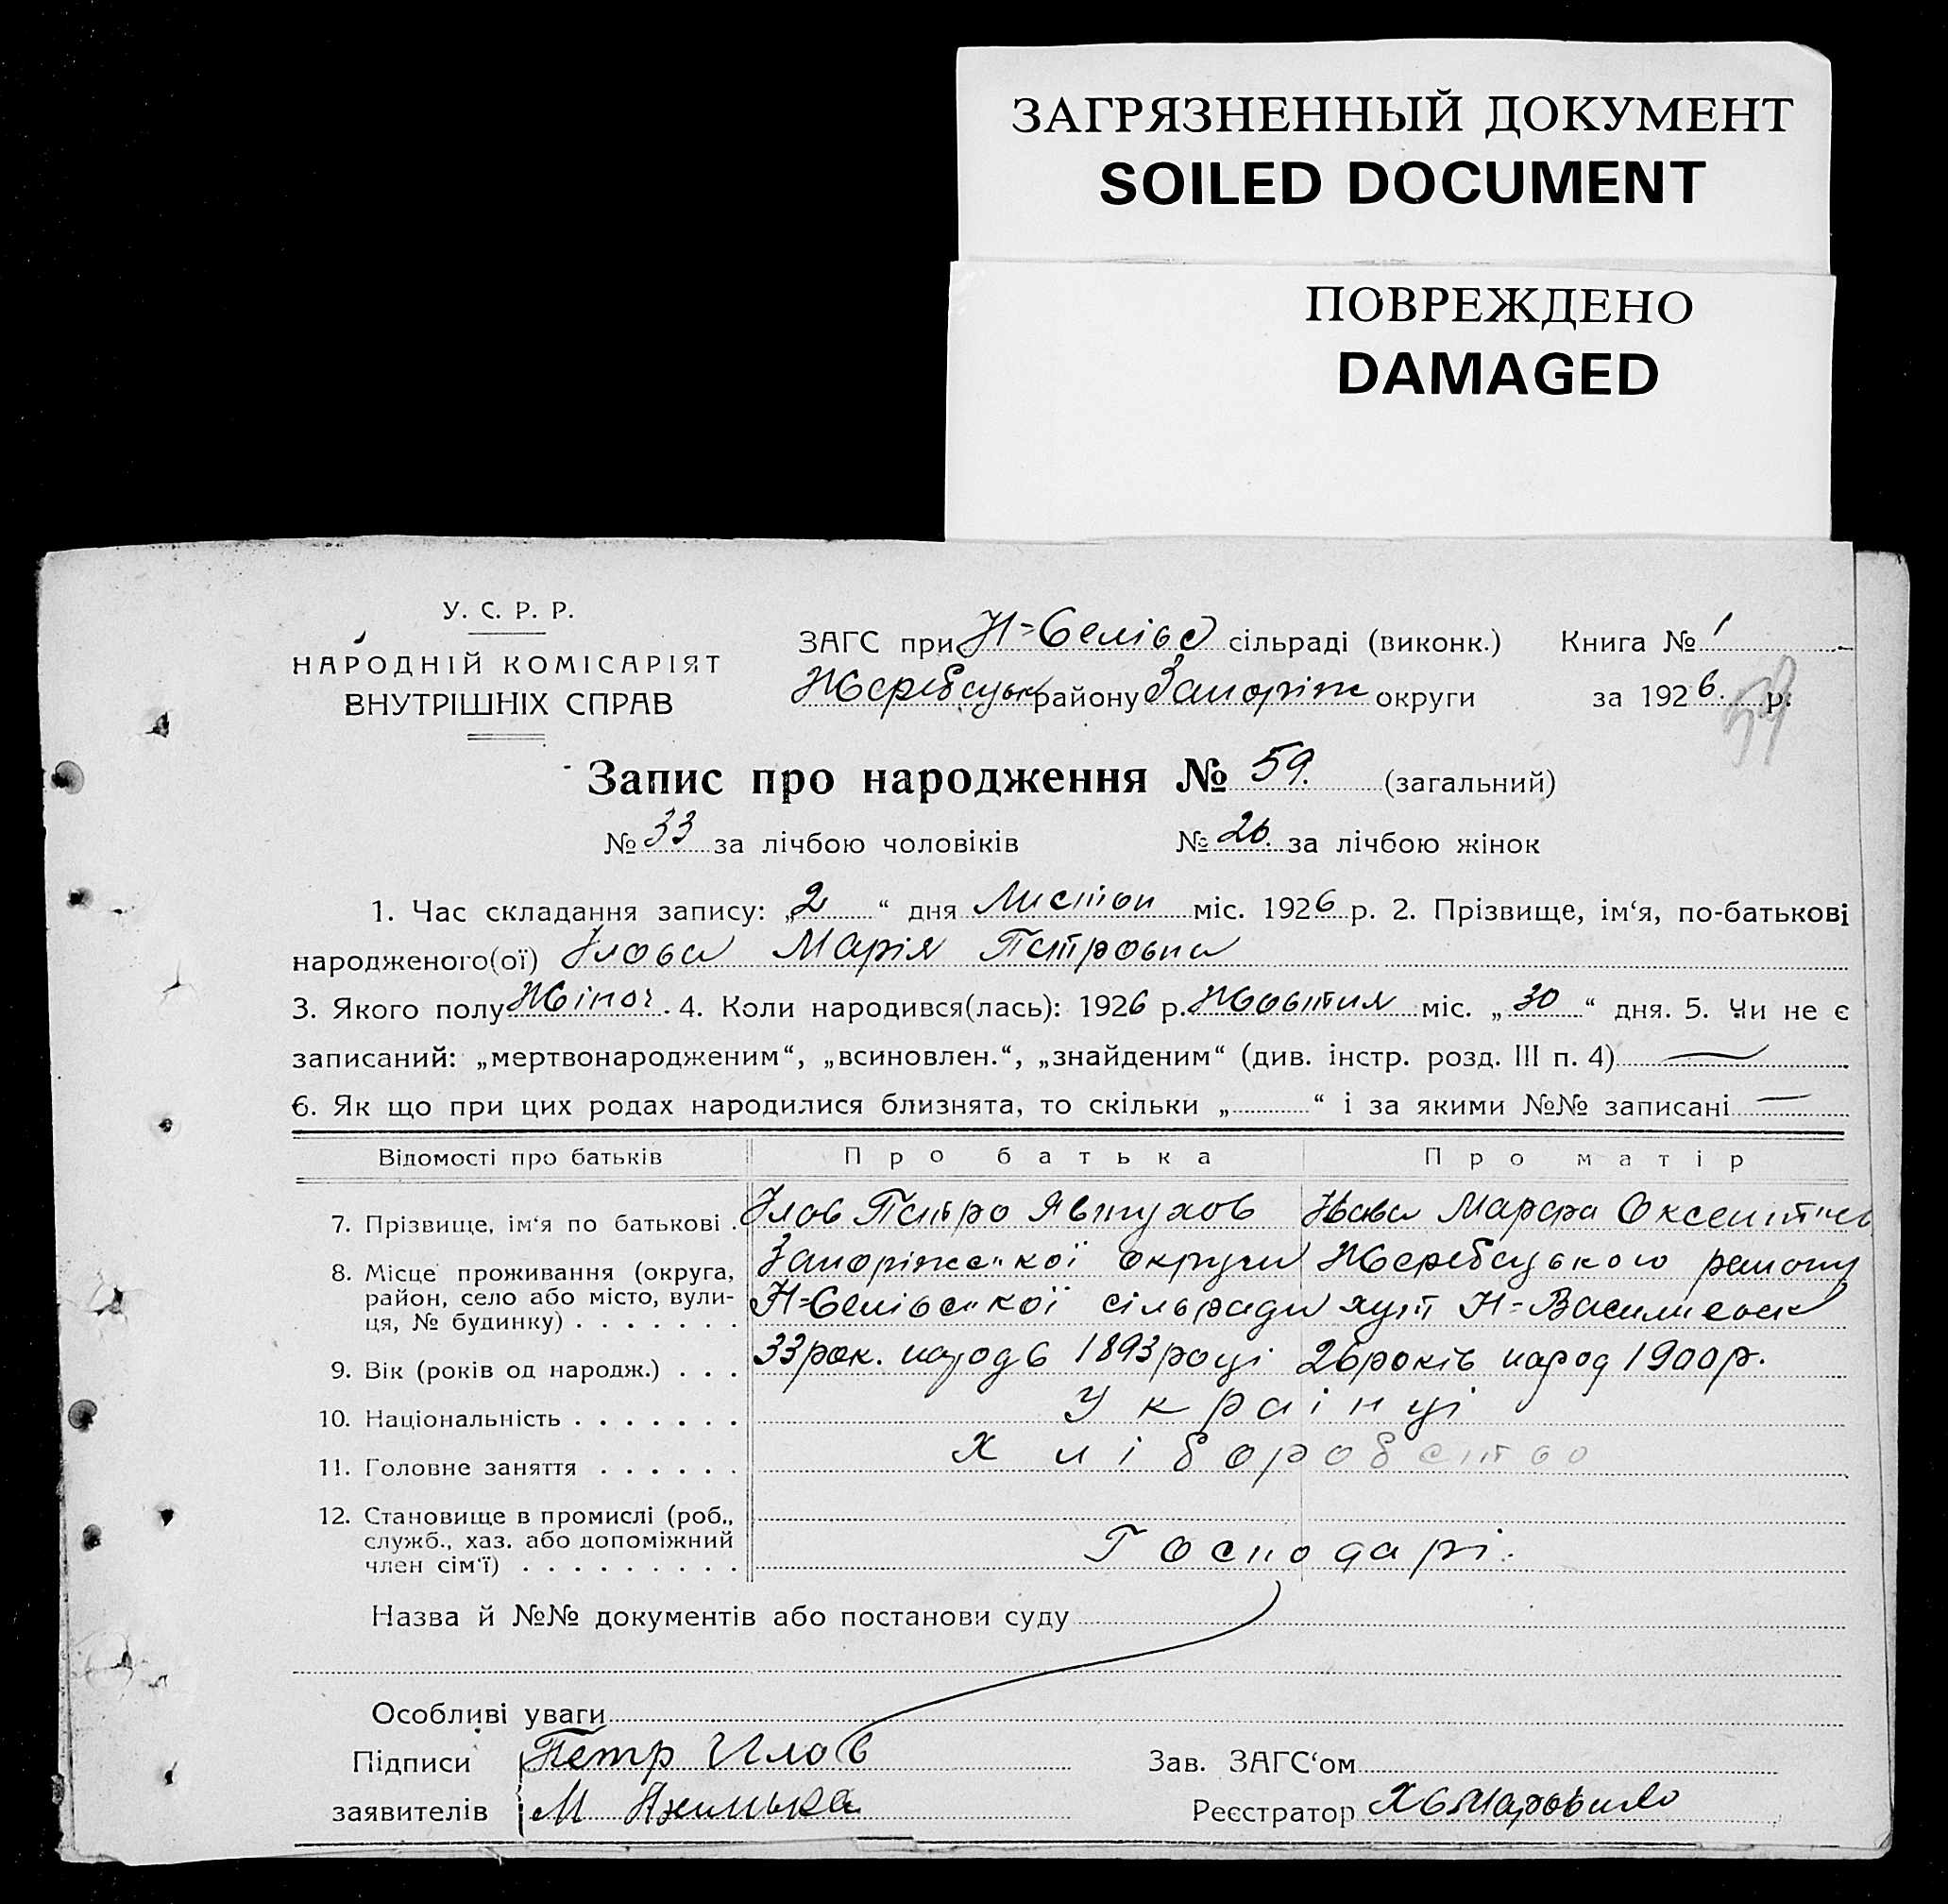 ЗАГРЯЗНЕННЫЙ ДОКУМЕНТ
SOILED DOCUMENT
ПОВРЕЖДЕНО
DAMAGED
У. С. Р. Р.
НАРОДНІЙ КОМІСАРІЯТ
ВНУТРІШНІХ СПРАВ
ЗАГС при Н=Селівс сільраді (виконк.) Книга № 1
Жеребецьк району Запоріж округи за 1926 р.
Запис про народження № 59. (загальний)
№ 33 за лічбою чоловіків № 26. за лічбою жінок
1. Час складання запису: „2“ дня Листоп міс. 1926 р. 2. Прізвище, ім‘я, по-батькові
народженого(ої) Ілова Марія Петровна
3. Якого полу Жіноч. 4. Коли народився(лась): 1926 р. Жовтня міс. „30“ дня. 5. Чи не є
записаний: „мертвонародженим“, „всиновлен.“, „знайденим“ (див. інстр. розд. III п. 4) —
6. Як що при цих родах народилися близнята, то скільки „ “ і за якими №№ записані —
Відомості про батьків Про батька Про матір
7. Прізвище, ім‘я по батькові . Ілов Петро Явтухов Марфа
8. Місце проживання (округа, Запоріжс"кої округи Жеребецького району
район, село або місто, вули- Н=Селівс"кої сільради хут Н=Василівськ
ця, № будинку) . . . . . . .
9. Вік (років од народж.) . . . 33 рок. народ в 1893 році 26 років народ 1900 р.
10. Національність . . . . . . . Українці
11. Головне заняття . . . . . . Хліборобство
12. Становище в промислі (роб.,
служб., хаз. або допоміжний Господарі.
член сім‘ї) . . . . . . . . .
Назва й №№ документів або постанови суду
Особливі уваги
Підписи Петр Илов Зав. ЗАГС‘ом
заявителів М Реєстратор